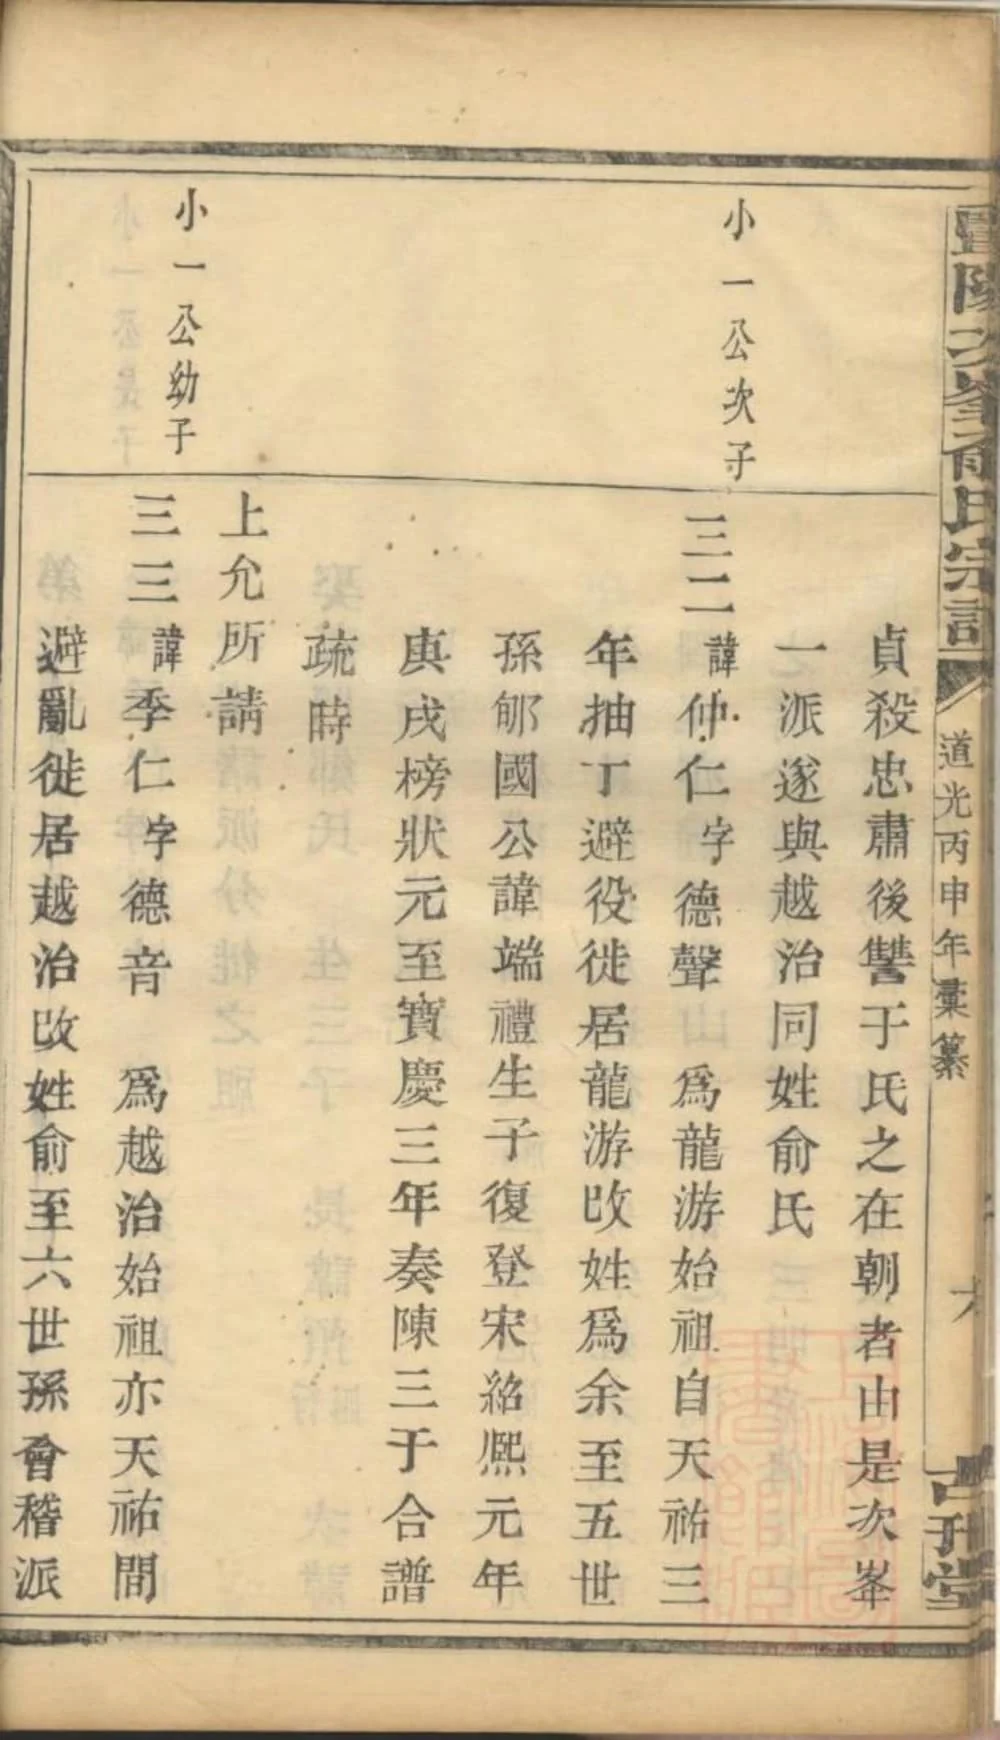 暨陽次峯俞氏宗譜
道光丙申年彙纂
貞殺忠肅後讐于氏之在朝者由是次峯
一派遂與越治同姓俞氏
小一公次子
三二諱仲仁字德聲 爲龍游始祖自天祐三
年抽丁避役徙居龍游改姓爲余至五世
孫郇國公諱端禮生子復登宋紹熙元年
庚戌榜狀元至寶慶三年奏陳三于合譜
疏時
上允所請
小一公幼子
三三諱季仁字德音 爲越治始祖亦天祐間
避亂徙居越治改姓俞至六世孫會稽派